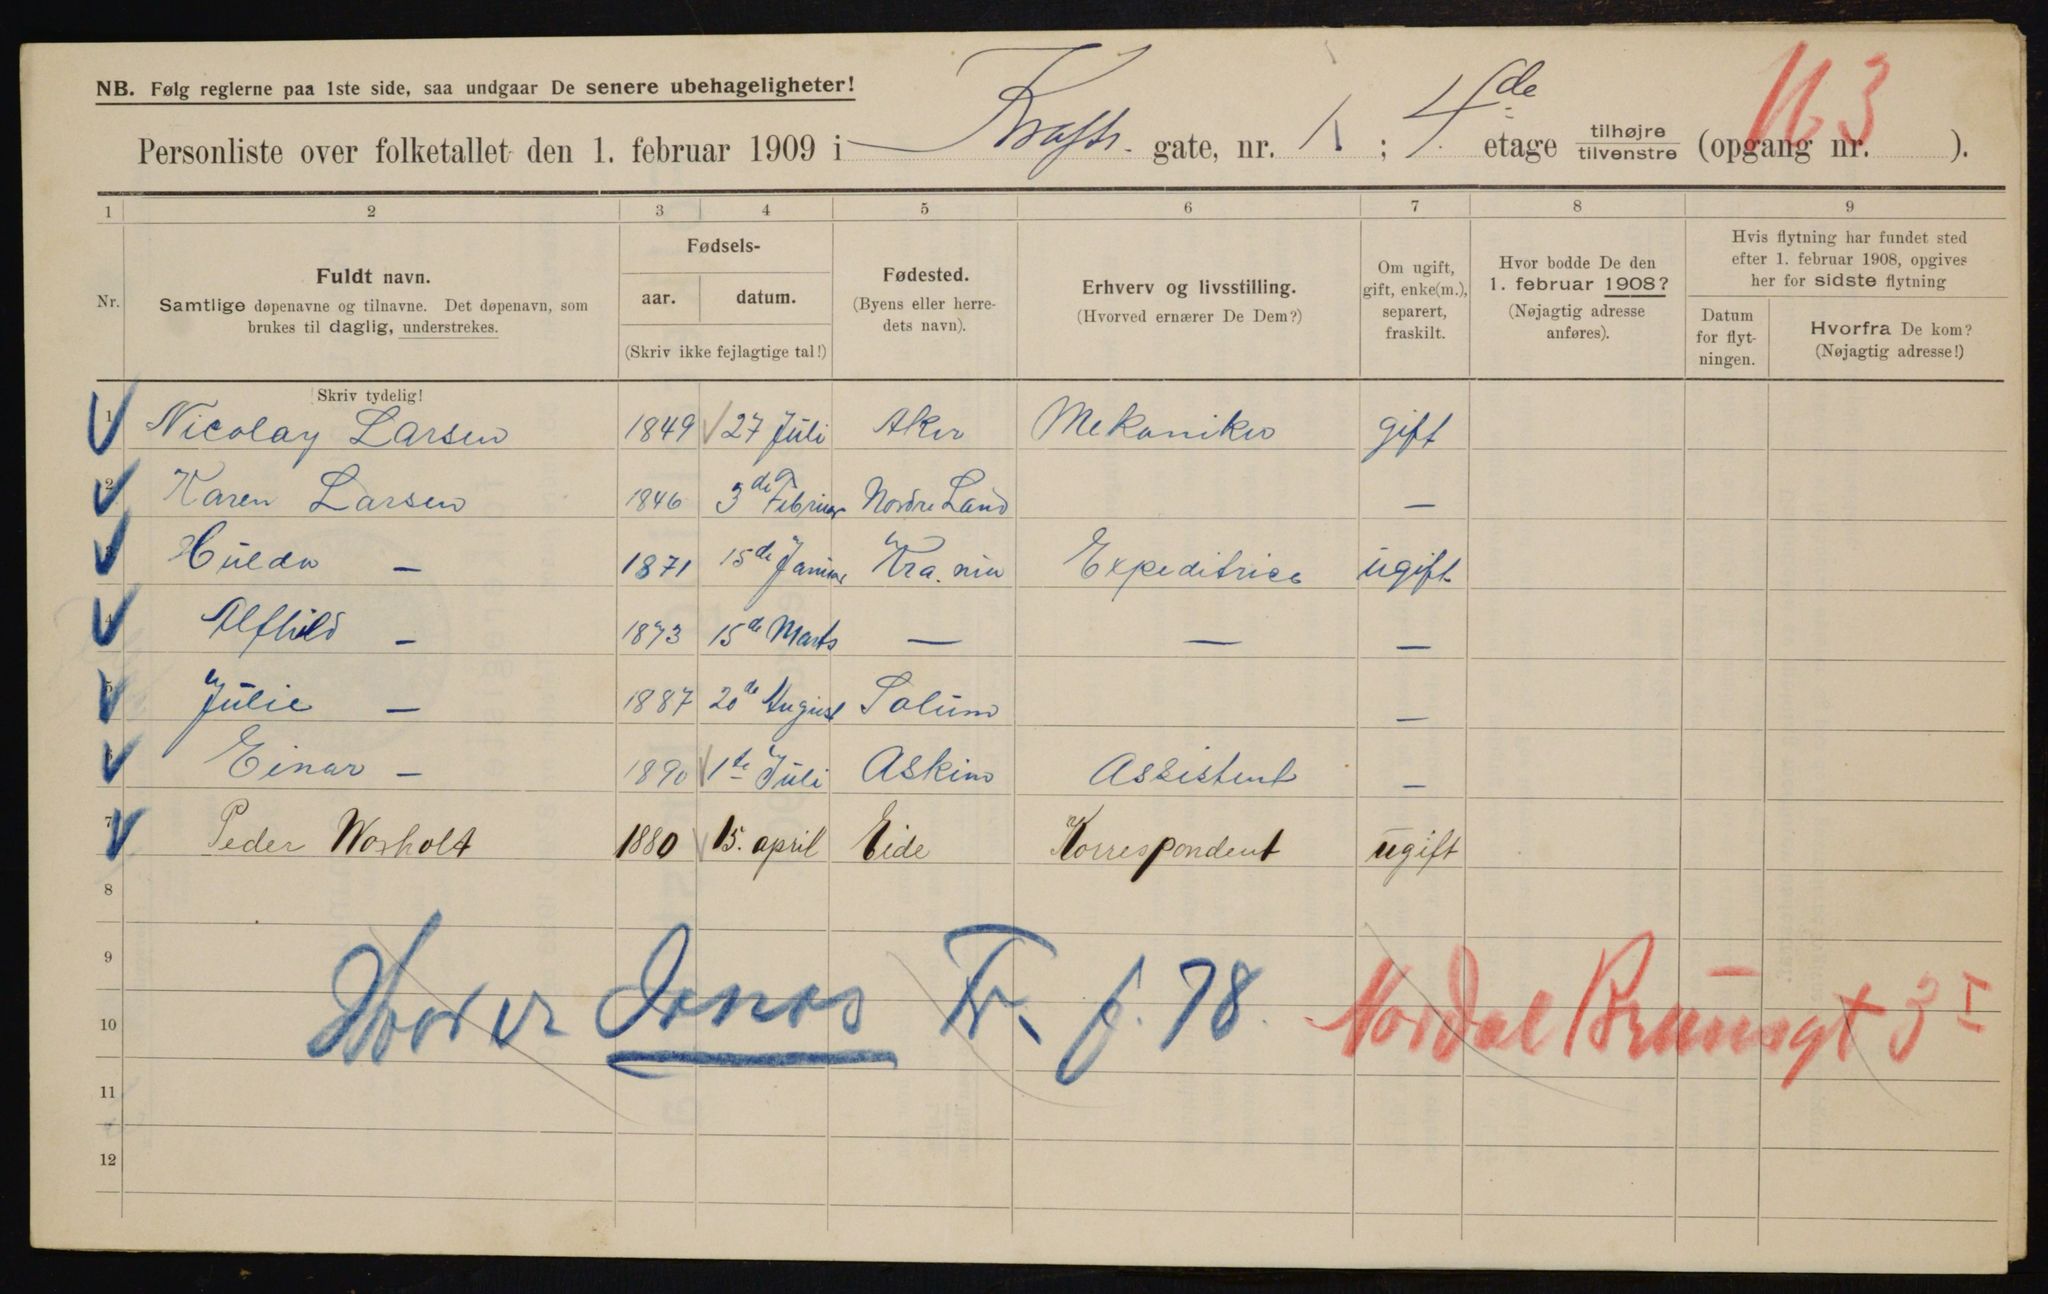 NB. Følg reglerne paa 1ste side, saa undgaar De senere ubehageligheter!
Personliste over folketallet den 1. februar 1909 i Krafts. gate, nr. 1; 4de etage tilhøjre tilvenstre (opgang nr. ).
1 2 3 4 5 6 7 8 9
Nr.
Fuldt navn.
Samtlige døpenavne og tilnavne. Det døpenavn, som
brukes til daglig, understrekes.
Fødsels-
aar. datum.
(Skriv ikke fejlagtige tal!)
Fødested.
(Byens eller herre-
dets navn).
Erhverv og livsstilling.
(Hvorved ernærer De Dem?)
Om ugift,
gift, enke(m.),
separert,
fraskilt.
Hvor bodde De den
1. februar 1908?
(Nøjagtig adresse
anføres).
Hvis flytning har fundet sted
efter 1. februar 1908, opgives
her for sidste flytning
Datum
for flyt-
ningen.
Hvorfra De kom?
(Nøjagtig adresse!)
Skriv tydelig!
1 Nicolay Larsen 1849 27 Juli Aker Mekaniker gift
2 Karen Larsen 1846 3de Februar Nordre Land —
3 Hulda — 1871 15de Januar Kra.nia Expeditrice ugift
4 Alfhild — 1873 15de Marts — — —
5 Julie — 1887 20de August Solum —
6 Einar — 1890 1ste Juli Askim Assistent —
7 Peder Norholt 1880 15. april Eide Korrespondent ugift
8
9
Hvor er Jonas Fr. f. 78. Nordal Brunsgt 3 I
10
11
12